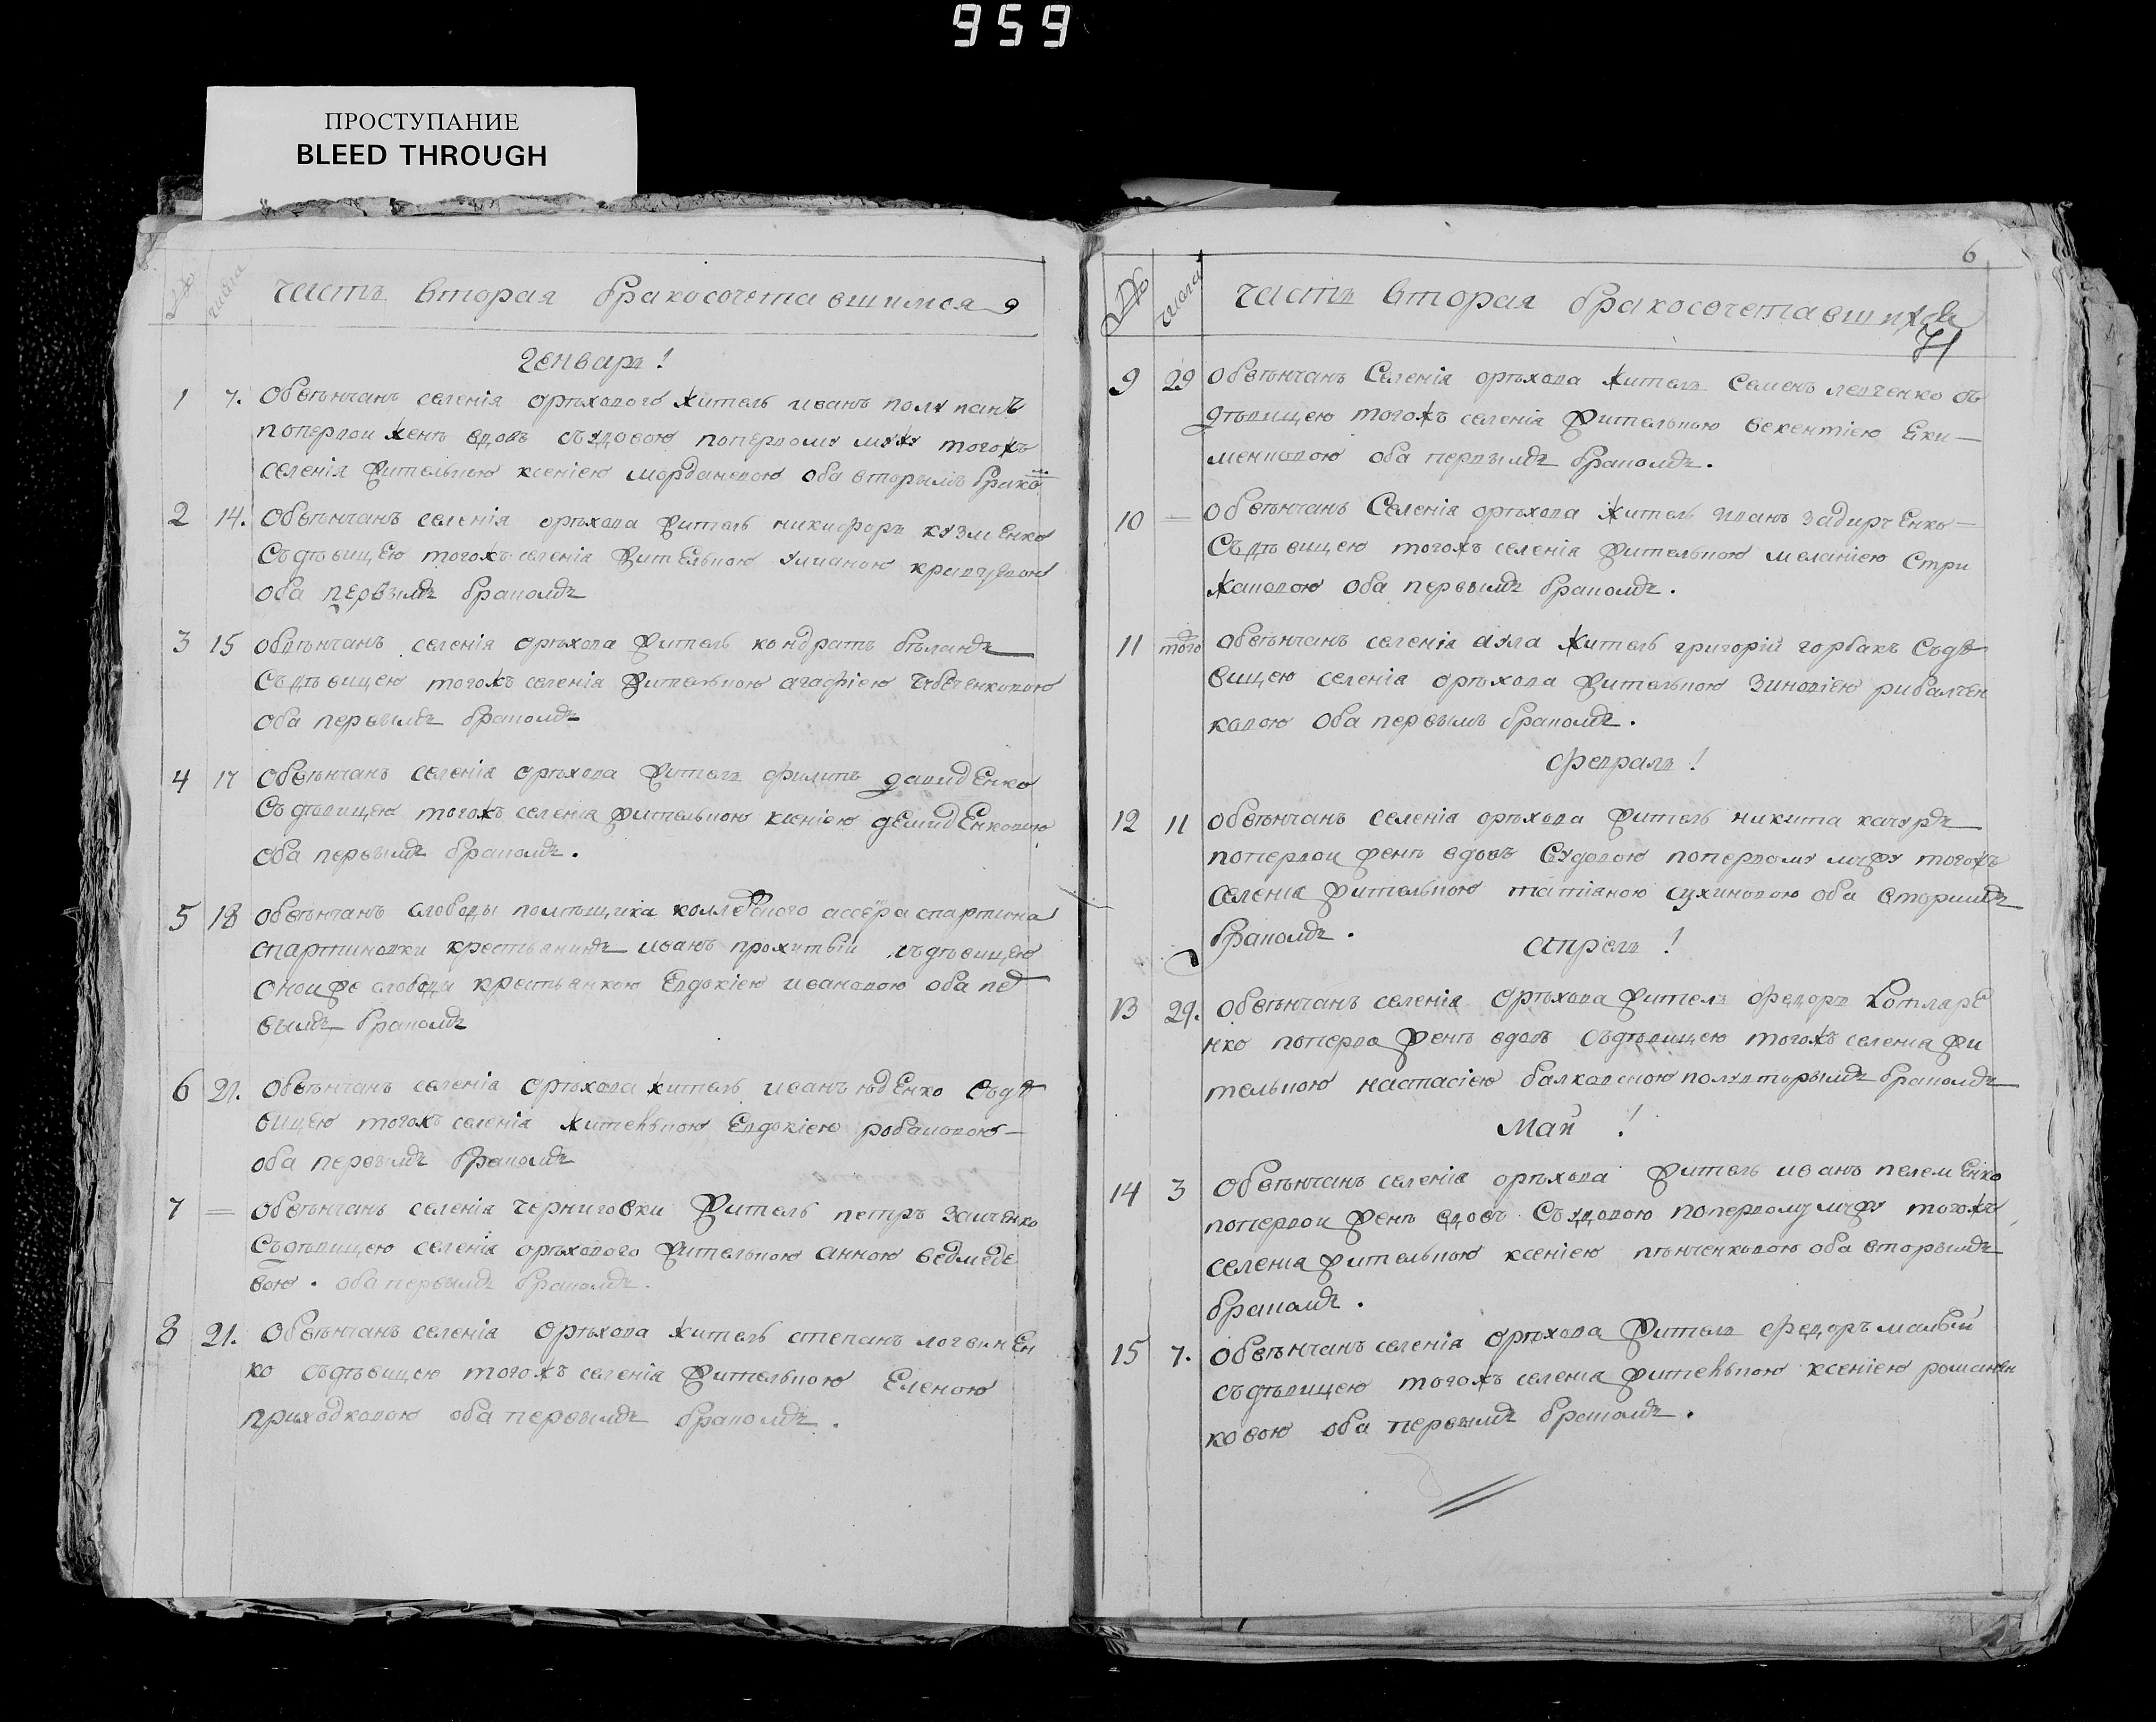 959
ПРОСТУПАНИЕ
BLEED THROUGH
№ числа часть вторая бракосочетавшимся
Генварь!
1 7. Обвѣнчанъ селенія орѣхового житель иванъ полупанъ
поперьвои женѣ вдовъ съудовою поперьвому мужу тогожъ
селенія жительною ксеніею мордановою оба вторымъ брако
2 14. Обвѣнчанъ селенія орѣхова житель никифоръ кузменко
Съдѣвицею тогожъ селенія жительною улианою
оба первымъ бракомъ
3 15 обвѣнчанъ селенія орѣхова житель кондратъ бѣланъ
Съдѣвицею тогожъ селенія жительною агафіею
оба первымъ бракомъ
4 17 Обвѣнчанъ селенія орѣхова житель филипъ давидЕнко
Съдѣвицею тогожъ селенія жительною ксеніею дЕмидЕнковою
оба первымъ бракомъ.
5 18 обвѣнчанъ слободы помѣщика ассера спартина
спартиновки крестьянинъ иванъ прожитый съдѣвицею
оноиже слободы крестьянкою Евдокіею ивановою оба пер
вымъ бракомъ
6 21. Обвѣнчанъ селенія орѣхова житель иванъ юдЕнко Съдѣ
вицею тогожъ селенія жительною Евдокіею
оба первымъ бракомъ
7 = обвѣнчанъ селенія черниговки житель петръ заиченко
Съдѣвицею селенія орѣхового жительною анною ведмеде
вою. оба первымъ бракомъ.
8 21. Обвѣнчанъ селенія орѣхова житель степанъ логвинЕн
ко съдѣвицею тогожъ селенія жительною Еленою
приходковою оба первымъ бракомъ.
6
числа часть вторая бракосочетавшихся
9 29 обвѣнчанъ Селенія орѣхова житель Семенъ левченко съ
дѣвицею тогожъ селенія жительною векентіею Еки-
меновою оба первымъ бракомъ.
10 = обвѣнчанъ Селенія орѣхова житель иванъ задирЕнко-
Съдѣвицею тогожъ селенія жительною меланіею Стри
жаковою оба первымъ бракомъ.
11 того обвѣнчанъ селенія аула житель григорій горбакъ Съдѣ
вицею селенія орѣхова жительною зиновіею рибалчен
ковою оба первымъ бракомъ.
февраль!
12 11 обвѣнчанъ селенія орѣхова житель никита качуръ
поперьвои женѣ вдовъ Судовою поперьвому мужу тогожъ
селенія жительною татіаною сухиновою оба вторимъ
бракомъ.
апрель!
13 29. обвѣнчанъ селенія орѣхова житель федоръ котларЕ
нко поперьво женѣ вдовъ Съдѣвицею тогожъ селенія жи
тельною настасіею балковскою полувторымъ бракомъ
Май!
14 3 Обвѣнчанъ селенія орѣхова житель иванъ пелемЕнко
поперьвои женѣ вдовъ Съудовою поперьвому мужу тогожъ
селенія жительною ксеніею пѣнченковою оба вторымъ
бракомъ.
15 7. Обвѣнчанъ селенія орѣхова житель федоръ малый
съдѣвицею тогожъ селенія жительною ксеніею романен
ковою оба первымъ бракомъ.